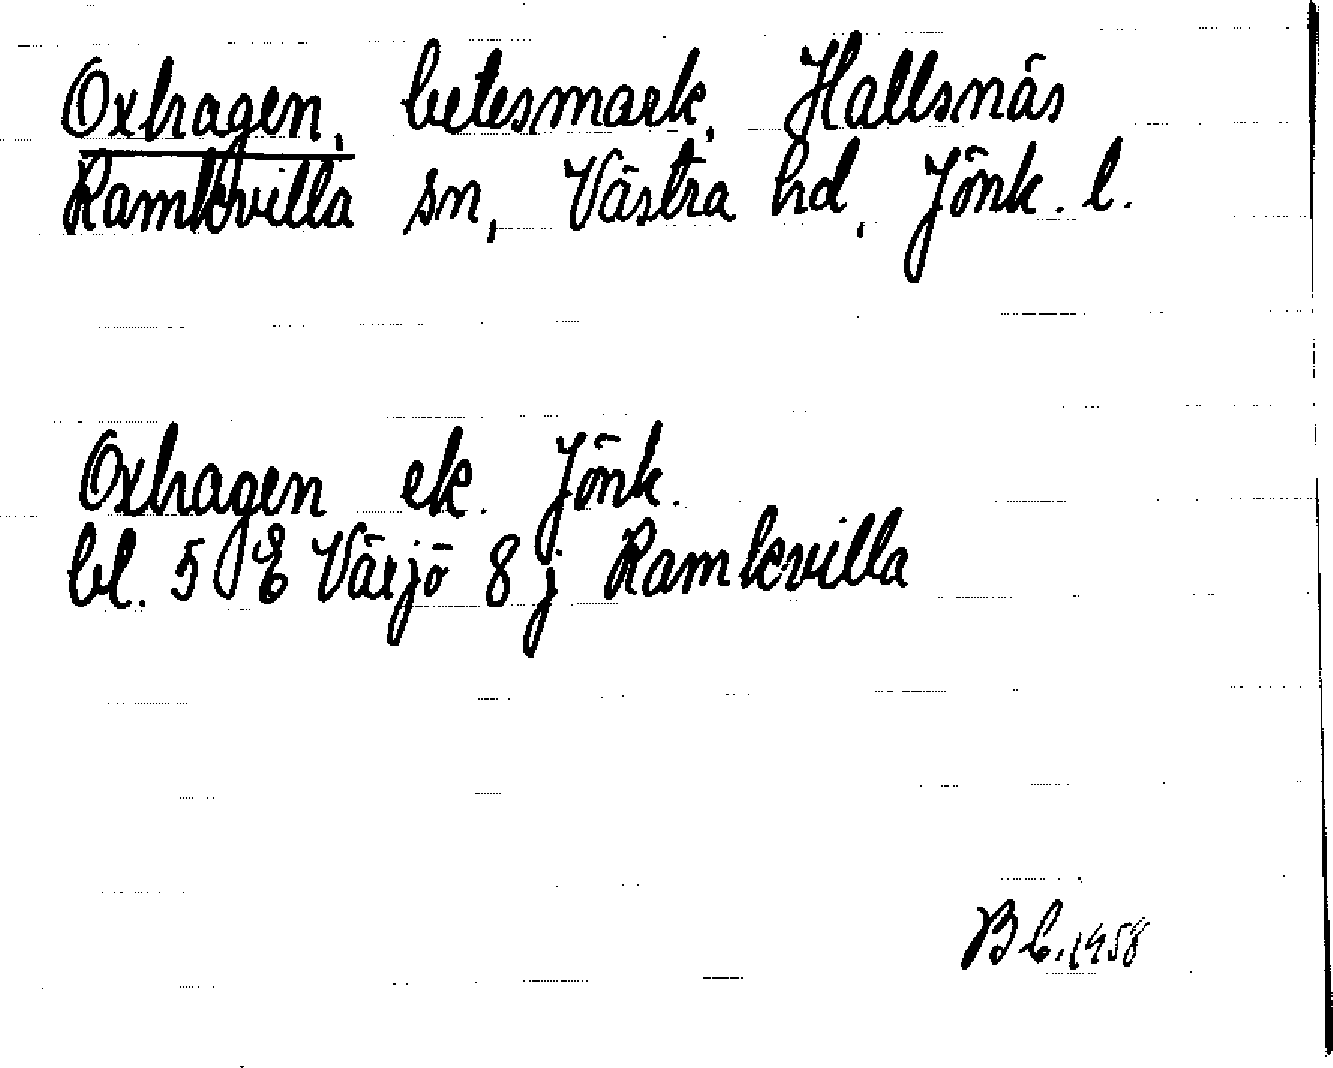 Oxhagen, betesmark, Hallsnäs
Ramkvilla sn, Västra hd, Jönk. l.
Oxhagen ek. Jönk.
bl. 5 E Värjö 8 j Ramkvilla
1958